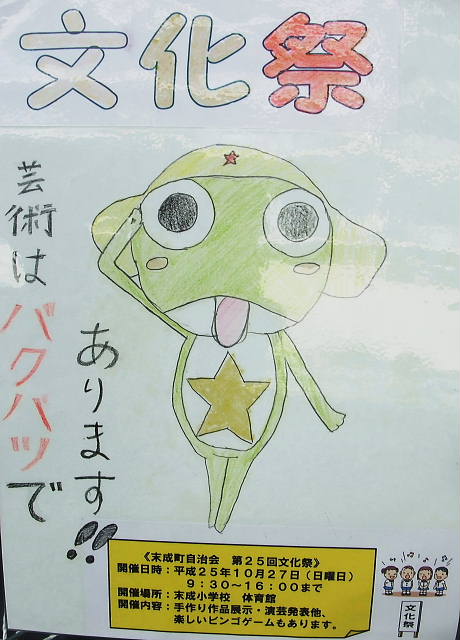 文化祭
芸術は
バクハツで
あります!!
《末成町自治会 第25回文化祭》
開催日時：平成25年10月27日（日曜日）
9：30～16：00まで
開催場所：末成小学校 体育館
開催内容：手作り作品展示・演芸発表他、
楽しいビンゴゲームもあります。
文化祭